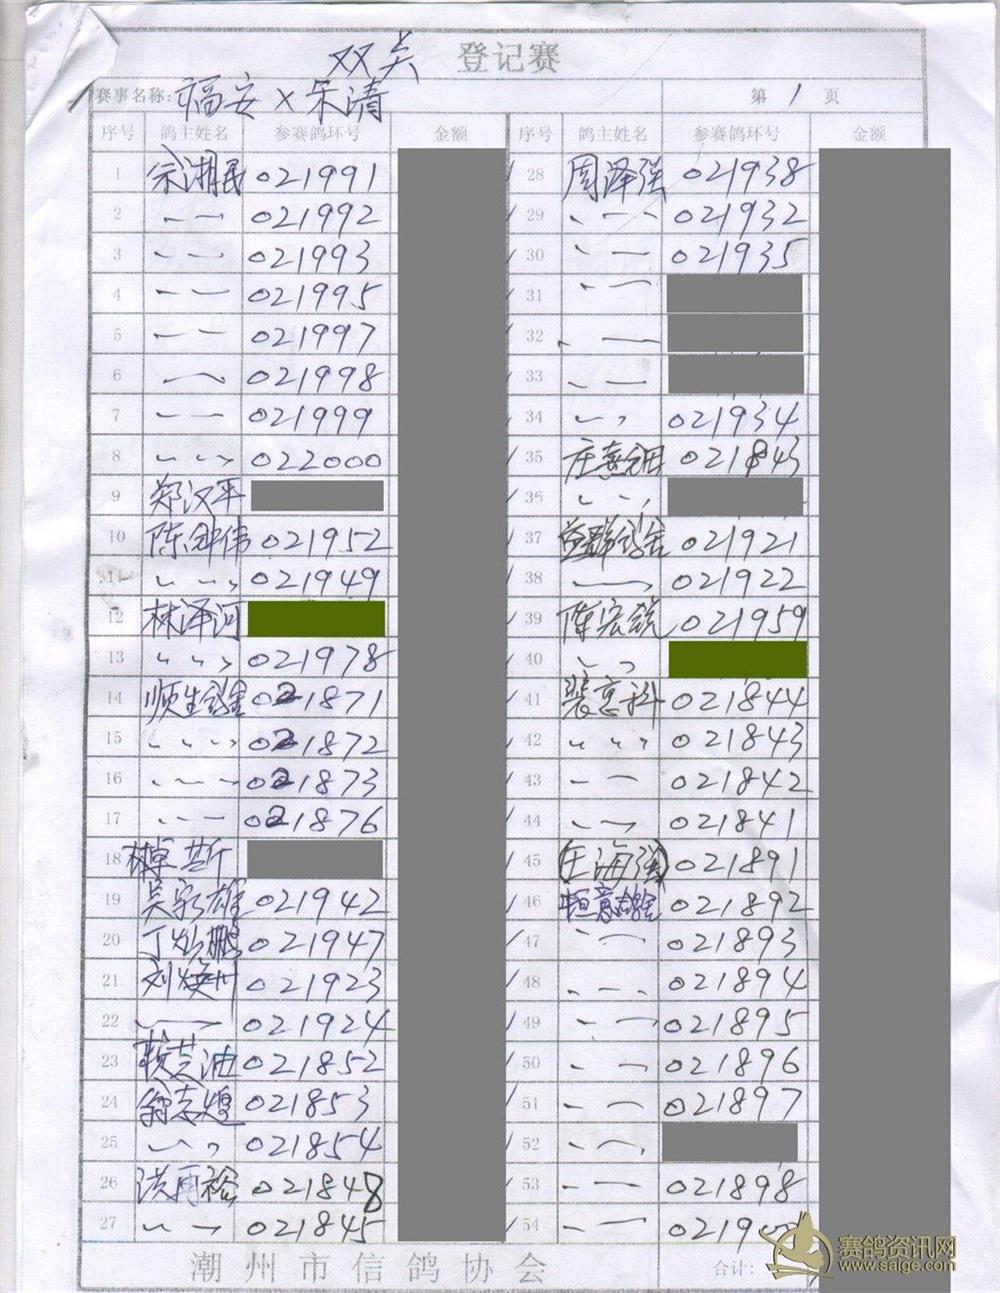 双关 登记赛
赛事名称: 福安 × 乐清 第 1 页
序号 鸽主姓名 参赛鸽环号 金额 序号 鸽主姓名 参赛鸽环号 金额
1 余湘民 021991 28 周泽强 021938
2 021992 29 021932
3 021993 30 021935
4 021995 31
5 021997 32
6 021998 33
7 021999 34 021934
8 022000 35 021843
9 郑汉平 36
10 021952 37 021921
11 021949 38 021922
12 林泽河 39 陈宏锐 021959
13 021978 40
14 顺生鸽舍 021871 41 021844
15 021872 42 021843
16 021873 43 021842
17 021876 44 021841
18 45 庄海强 021891
19 吴家雄 021942 46 恒意鸽舍 021892
20 丁灿鹏 021947 47 021893
21 021923 48 021894
22 021924 49 021895
23 021852 50 021896
24 翁志煌 021853 51 021897
25 021854 52
26 洪再裕 021848 53 021898
27 021845 54
潮州市信鸽协会 合计:
赛鸽资讯网
www.saige.com